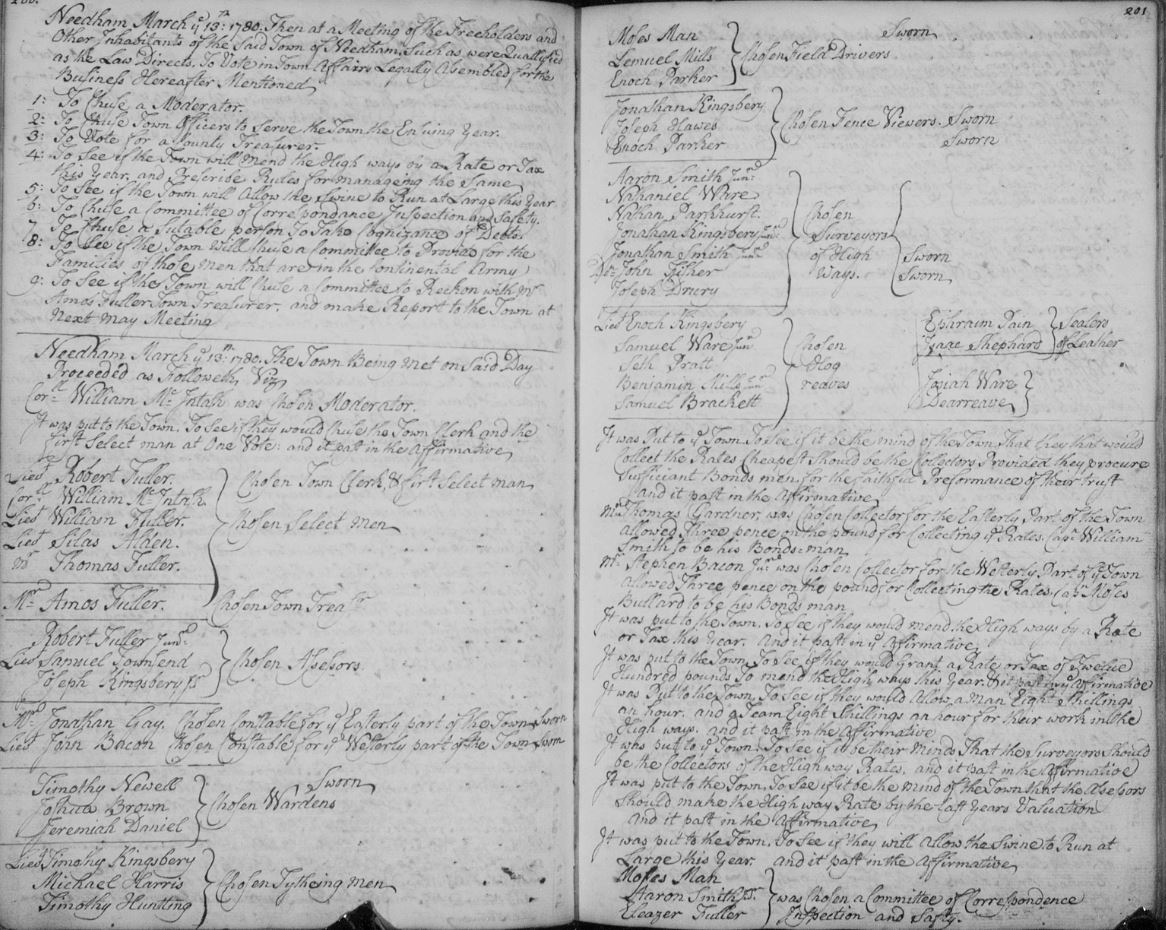 200.
Needham March yͤ 13ᵗʰ: 1780. Then at a Meeting of the Freeholders and
Other Inhabitants of the Said Town of Needham, Such as were Quallified
as the Law Directs, To Vote in Town Affairs Legally Asembled for the
Business Hereafter Mentioned
1: To Chuse a Moderator.
2: To Chuse Town Officers to Serve the Town the Ensuing Year.
3: To Vote for a County Treasurer.
4: To See if the Town will Mend the High ways by a Rate or Tax
this Year, and Prescribe Rules for manageing the Same
5: To See if the Town will Allow the Swine to Run at Large this Year
6: To Chuse a Committee of Correspondance Inspection and Safety.
7: To Chuse a Sutable person To Take Cognizance of Debts.
8: To See if the Town will Chuse a Committee to Provied for the
Families of those Men that are in the Continental Army
9: To See if the Town will Chuse a Committee to Reckon with Mr
Amos Fuller Town Treasurer, and make Report to the Town at
Next May Meeting
Needham March yͤ 13ᵗʰ: 1780. The Town Being met on Said Day
Proceeded as Followeth, Viz
Corˡˡ William McIntash was Chosen Moderator.
It was put to the Town, To See if they would Chuse the Town Clerk and the
First Select man at One Vote: and it past in the Affirmative
Lieut Robert Fuller. Chosen Town Clerk, & first Select man
Corˡˡ William McIntash
Lieut William Fuller. Chosen Select men
Lieut Silas Alden.
Mr Thomas Fuller.
Mr Amos Fuller. Chosen Town Treasr
Robert Fuller Junr
Lieut Samuel Townsend Chosen Asesors.
Joseph Kingsbery
Mr Jonathan Gay. Chosen Constable for yͤ Easterly part of the Town Sworn
Lieut John Bacon Chosen Constable for yͤ Westerly part of the Town Sworn
Timothy Newell Sworn
Joshua Brown Chosen Wardens
Jeremiah Daniel
Lieut Timothy Kingsbery
Michael Harris Chosen Tytheing men
Timothy Hunting
201
Moses Man Sworn
Lemuel Mills Chosen Field Drivers
Enoch Parker
Jonathan Kingsbery
Joseph Hawes Chosen Fence Viewers. Sworn
Enoch Parker Sworn
Aaron Smith Junr
Nathaniel Ware
Nathan Parkhurst. Chosen
Jonathan Kingsbery Junr Surveyors
Jonathan Smith Junr of High Sworn
John Fisher Ways. Sworn
Joseph Drury
Lieut Enoch Kingsbery Ephraim Pain Sealers
Samuel Ware Junr Chosen Isaac Shephard of Leather
Seth Pratt Hog
Benjamin Mills Junr reaves Josiah Ware
Samuel Brackett Dearreave
It was Put to yͤ Town To See if it be the mind of the Town, That they that would
Collect the Rates Cheapest Should be the Collectors Provided they procure
Sufficiant Bonds men for the faithful Preformance of their Trust
and it past in the Affirmative
Mr Thomas Gardner, was Chosen Collector for the Easterly Part of the Town
allowed Three pence on the pound for Collecting yͤ Rates, Capt William
Smith to be his Bonds man
Mr Stephen Bacon Junr was Chosen Collector for the Westerly Part of yͤ Town
allowed Three pence on the pound for Collecting the Rates, Capt Moses
Bullard to be his Bonds man
It was put to the Town, To See if they would mend the High ways by a Rate
or Tax this Year, and it past in yͤ Affirmative
It was put to the Town, To See if they would Grant a Rate or Tax of Twelve
Hundred pounds To mend the High ways this Year, & it past in yͤ Affirmative
It was Put to the Town, To See if they would Allow a Man Eight Shillings
an hour, and a Team Eight Shillings an hour for their work in the
High ways, and it past in the Affirmative
It was put to yͤ Town, To See if it be their Minds That the Surveyors Should
be the Collectors of the High way Rates, and it past in the Affirmative
It was put to the Town, To See if it be the mind of the Town that the Asesors
Should make the High way Rate by the Last Years Valuation
and it past in the Affirmative
It was put to the Town, To See if they will Allow the Swine to Run at
Large this Year, and it past in the Affirmative
Moses Man
Aaron Smith Junr was Chosen a Committee of Correspondence
Eleazer Fuller Inspection and Safty.